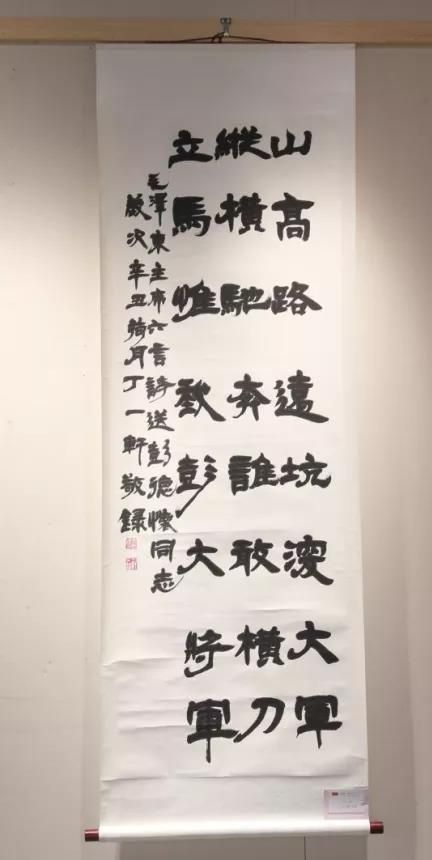 山高路遠坑深大軍
縱橫馳奔誰敢橫刀
立馬惟我彭大將軍
毛澤東主席六言詩送彭德懷同志
歲次辛丑荷月丁一軒敬錄